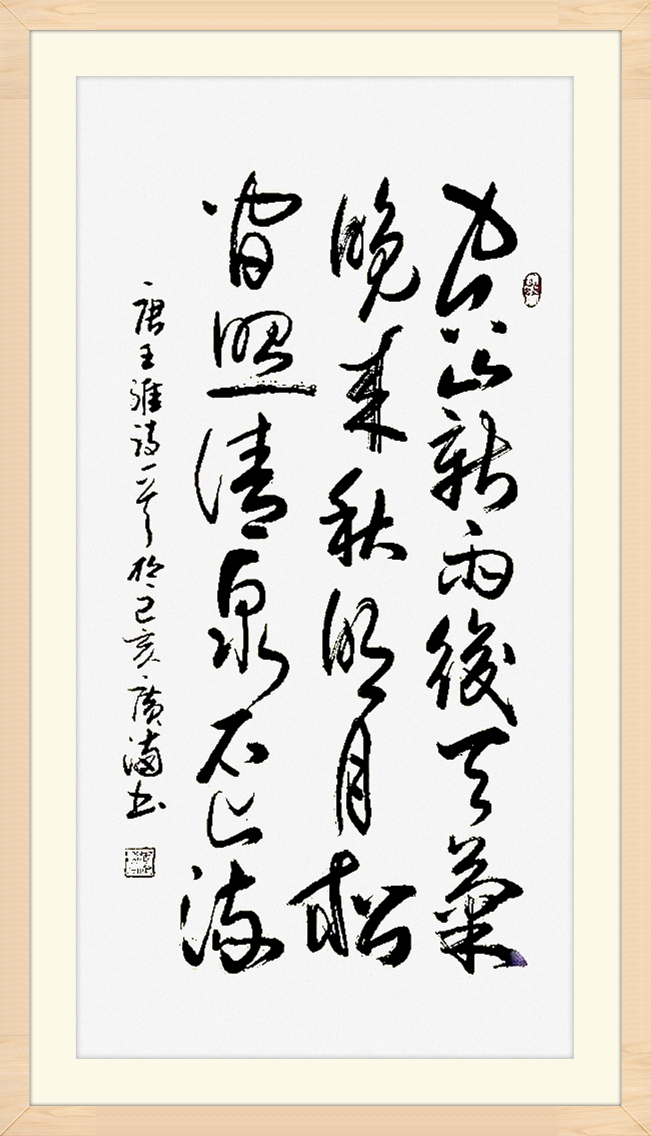 空山新雨後天氣
晚来秋明月松
間照清泉石上流
唐王維詩一首於己亥廣滿书